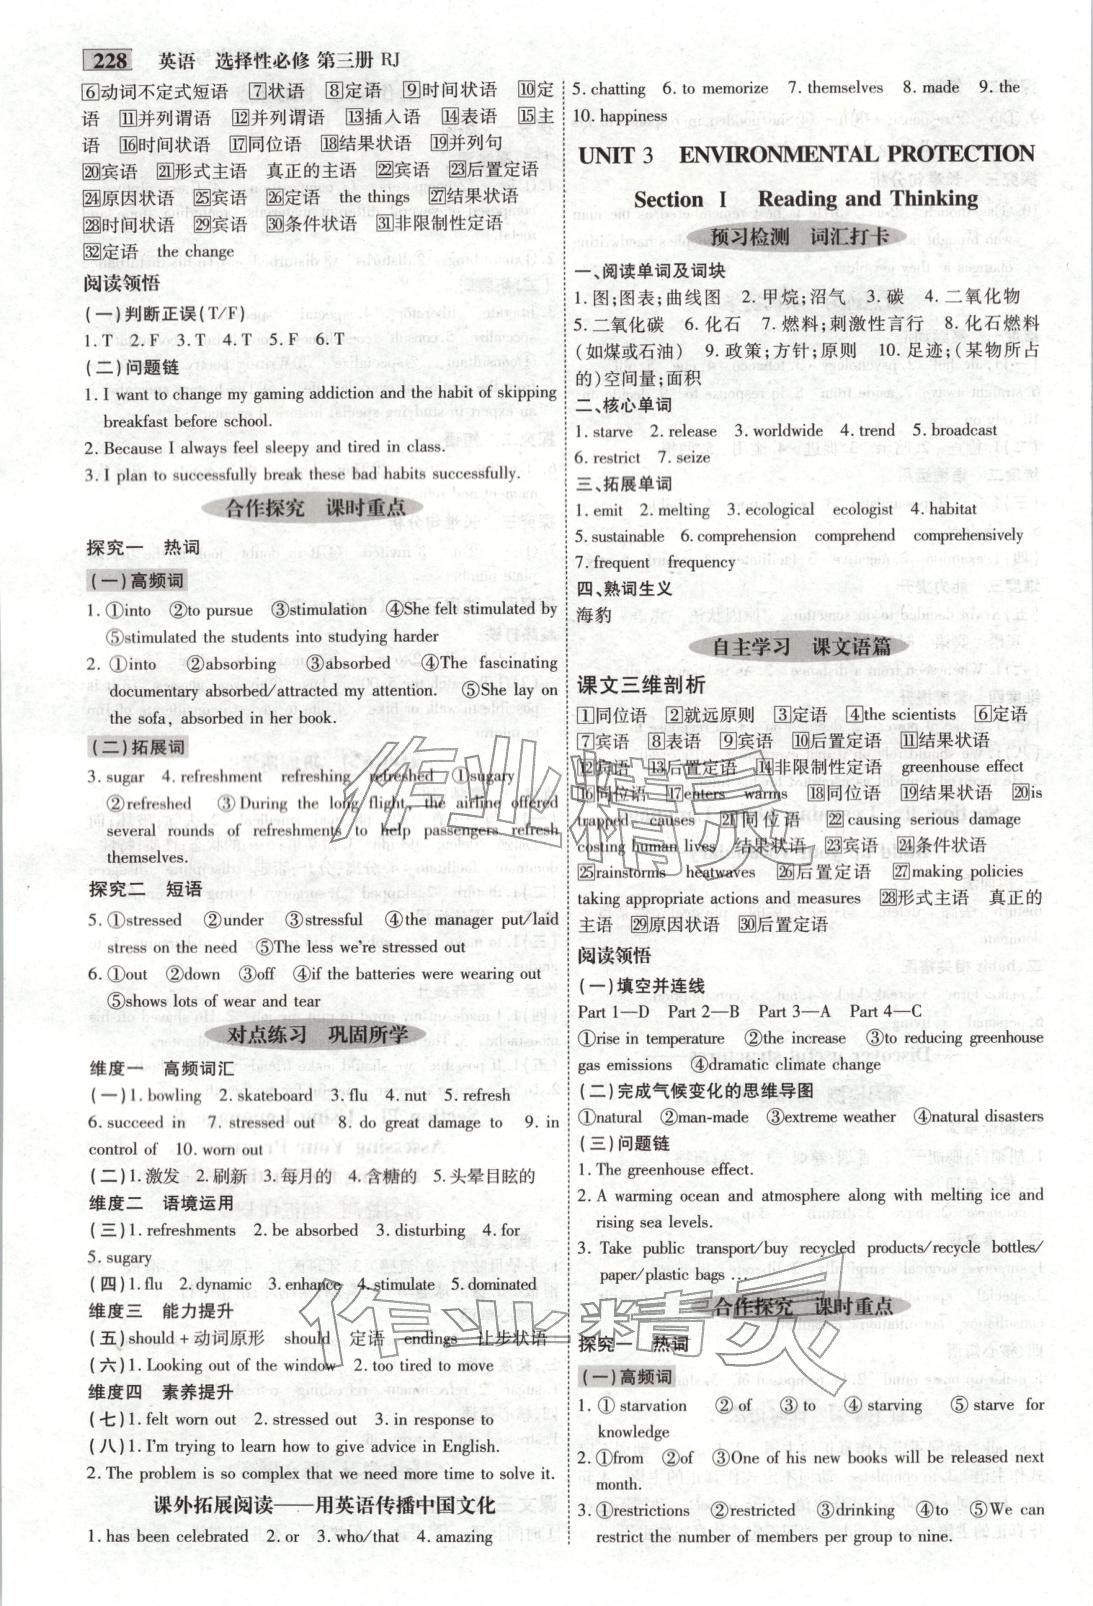 228 英语 选择性必修 第三册 RJ
⑥动词不定式短语 ⑦状语 ⑧定语 ⑨时间状语 ⑩定
语 ⑪并列谓语 ⑫并列谓语 ⑬插入语 ⑭表语 ⑮主
语 ⑯时间状语 ⑰同位语 ⑱结果状语 ⑲并列句
⑳宾语 ㉑形式主语 真正的主语 ㉒宾语 ㉓后置定语
㉔原因状语 ㉕宾语 ㉖定语 the things ㉗结果状语
㉘时间状语 ㉙宾语 ㉚条件状语 ㉛非限制性定语
㉜定语 the change
阅读领悟
(一)判断正误(T/F)
1. T 2. F 3. T 4. T 5. F 6. T
(二)问题链
1. I want to change my gaming addiction and the habit of skipping
breakfast before school.
2. Because I always feel sleepy and tired in class.
3. I plan to successfully break these bad habits successfully.
合作探究 课时重点
探究一 热词
(一)高频词
1. ①into ②to pursue ③stimulation ④She felt stimulated by
⑤stimulated the students into studying harder
2. ①into ②absorbing ③absorbed ④The fascinating
documentary absorbed/attracted my attention. ⑤She lay on
the sofa, absorbed in her book.
(二)拓展词
3. sugar 4. refreshment refreshing refreshed ①sugary
②refreshed ③During the long flight, the airline offered
several rounds of refreshments to help passengers refresh
themselves.
探究二 短语
5. ①stressed ②under ③stressful ④the manager put/laid
stress on the need ⑤The less we're stressed out
6. ①out ②down ③off ④if the batteries were wearing out
⑤shows lots of wear and tear
对点练习 巩固所学
维度一 高频词汇
(一)1. bowling 2. skateboard 3. flu 4. nut 5. refresh
6. succeed in 7. stressed out 8. do great damage to 9. in
control of 10. worn out
(二)1. 激发 2. 刷新 3. 每月的 4. 含糖的 5. 头晕目眩的
维度二 语境运用
(三)1. refreshments 2. be absorbed 3. disturbing 4. for
5. sugary
(四)1. flu 2. dynamic 3. enhance 4. stimulate 5. dominated
维度三 能力提升
(五)should+动词原形 should 定语 endings 让步状语
(六)1. Looking out of the window 2. too tired to move
维度四 素养提升
(七)1. felt worn out 2. stressed out 3. in response to
(八)1. I'm trying to learn how to give advice in English.
2. The problem is so complex that we need more time to solve it.
课外拓展阅读——用英语传播中国文化
1. has been celebrated 2. or 3. who/that 4. amazing
5. chatting 6. to memorize 7. themselves 8. made 9. the
10. happiness
UNIT 3 ENVIRONMENTAL PROTECTION
Section Ⅰ Reading and Thinking
预习检测 词汇打卡
一、阅读单词及词块
1. 图;图表;曲线图 2. 甲烷;沼气 3. 碳 4. 二氧化物
5. 二氧化碳 6. 化石 7. 燃料;刺激性言行 8. 化石燃料
(如煤或石油) 9. 政策;方针;原则 10. 足迹;(某物所占
的)空间量;面积
二、核心单词
1. starve 2. release 3. worldwide 4. trend 5. broadcast
6. restrict 7. seize
三、拓展单词
1. emit 2. melting 3. ecological ecologist 4. habitat
5. sustainable 6. comprehension comprehend comprehensively
7. frequent frequency
四、熟词生义
海豹
自主学习 课文语篇
课文三维剖析
①同位语 ②就远原则 ③定语 ④the scientists ⑥定语
⑦宾语 ⑧表语 ⑨宾语 ⑩后置定语 ⑪结果状语
⑫宾语 ⑬后置定语 ⑭非限制性定语 greenhouse effect
⑯同位语 ⑰enters warms ⑱同位语 ⑲结果状语 ⑳is
trapped causes ㉑同位语 ㉒causing serious damage
costing human lives 结果状语 ㉓宾语 ㉔条件状语
㉕rainstorms heatwaves ㉖后置定语 ㉗making policies
taking appropriate actions and measures ㉘形式主语 真正的
主语 ㉙原因状语 ㉚后置定语
阅读领悟
(一)填空并连线
Part 1—D Part 2—B Part 3—A Part 4—C
①rise in temperature ②the increase ③to reducing greenhouse
gas emissions ④dramatic climate change
(二)完成气候变化的思维导图
①natural ②man-made ③extreme weather ④natural disasters
(三)问题链
1. The greenhouse effect.
2. A warming ocean and atmosphere along with melting ice and
rising sea levels.
3. Take public transport/buy recycled products/recycle bottles/
paper/plastic bags …
合作探究 课时重点
探究一 热词
(一)高频词
1. ①starvation ②of ③to ④starving ⑤starve for
knowledge
2. ①from ②of ③One of his new books will be released next
month.
3. ①restrictions ②restricted ③drinking ④to ⑤We can
restrict the number of members per group to nine.
作业精灵
作业精灵